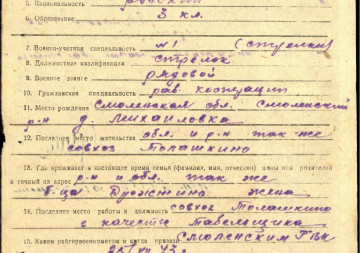 5. Национальность русский
6. Образование 3 кл.
7. Военно-учетная специальность №1 (стрелки)
8. Должностная квалификация стрелок
9. Военное звание рядовой
10. Гражданская специальность
11. Место рождения Смоленская обл. Смоленский
р-н д. Михайловка
12. Последнее место жительства обл. и р-н так же
совхоз Талашкино
13. Где проживает в настоящее время семья (фамилия, имя, отчество) жены или родителей
и точный их адрес р-н и обл. так же
жена
14. Последнее место работы и должность совхоз Талашкино
в качестве
15. Каким райгорвоенкоматом и когда призван Смоленским РВК